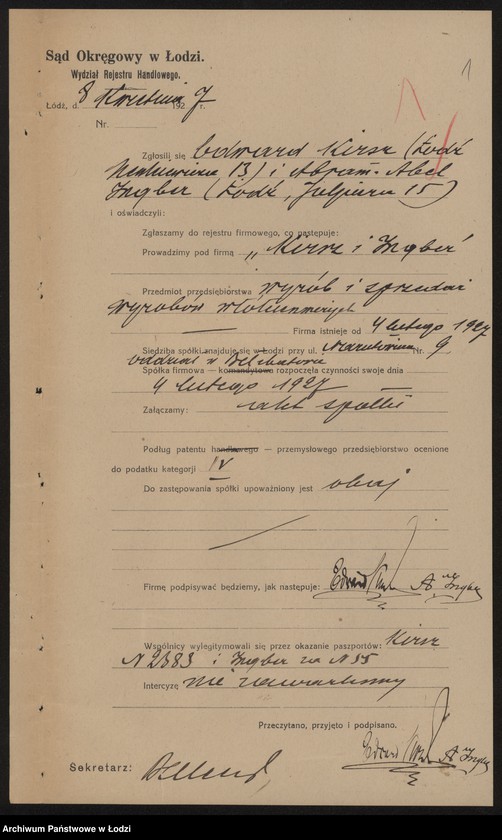 1
Sąd Okręgowy w Łodzi.
Wydział Rejestru Handlowego.
Łódź, d. 8 Kwietnia 192 7
Nr.
Zgłosili się Edward Kirsz (Łódź
13) i Abram-Abel
Ingber (Łódź, 15)
i oświadczyli:
Zgłaszamy do rejestru firmowego, co następuje:
Prowadzimy pod firmą „Kirsz i Ingber"
Przedmiot przedsiębiorstwa wyrób i sprzedaż
wyrobów włókienniczych
Firma istnieje od 4 lutego 1927
Siedziba spółki znajduje się w Łodzi przy ul. Nr. 9
oddział w
Spółka firmowa — komandytowa rozpoczęła czynności swoje dnia
4 lutego 1927
Załączamy: akt spółki
Podług patentu handlowego — przemysłowego przedsiębiorstwo ocenione
do podatku kategorji IV
Do zastępowania spółki upoważniony jest obaj
Firmę podpisywać będziemy, jak następuje: Edward Kirsz A Ingber
Wspólnicy wylegitymowali się przez okazanie paszportów: Kirsz
N 2383 i Ingber za N 55
Intercyzę nie zawarliśmy
Przeczytano, przyjęto i podpisano.
Edward Kirsz A Ingber
Sekretarz:
Archiwum Państwowe w Łodzi